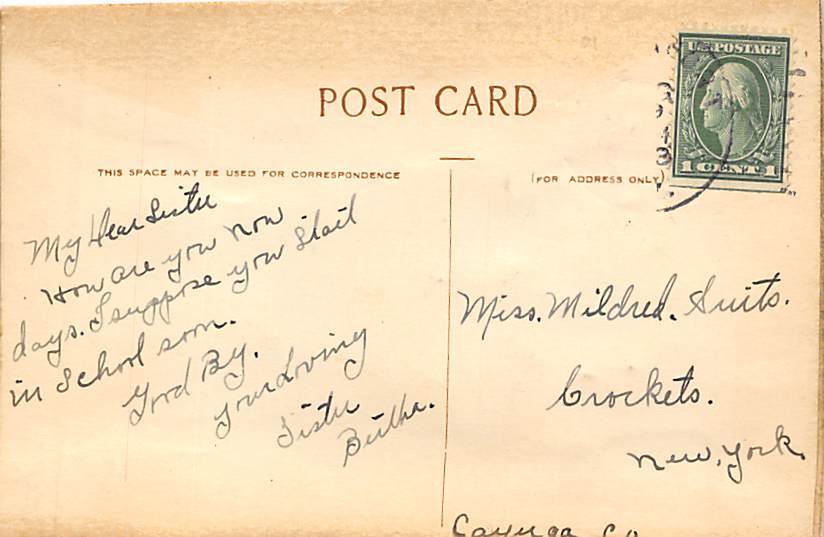 POST CARD
THIS SPACE MAY BE USED FOR CORRESPONDENCE
(FOR ADDRESS ONLY)
U.S. POSTAGE
1 CENT 1
My Dear Sister
How are you now
days. I suppose you start
in School soon.
Good By.
Your Loving
Sister
Bertha.
Miss. Mildred. Suits.
Crockets.
New, York.
Cayuga Co